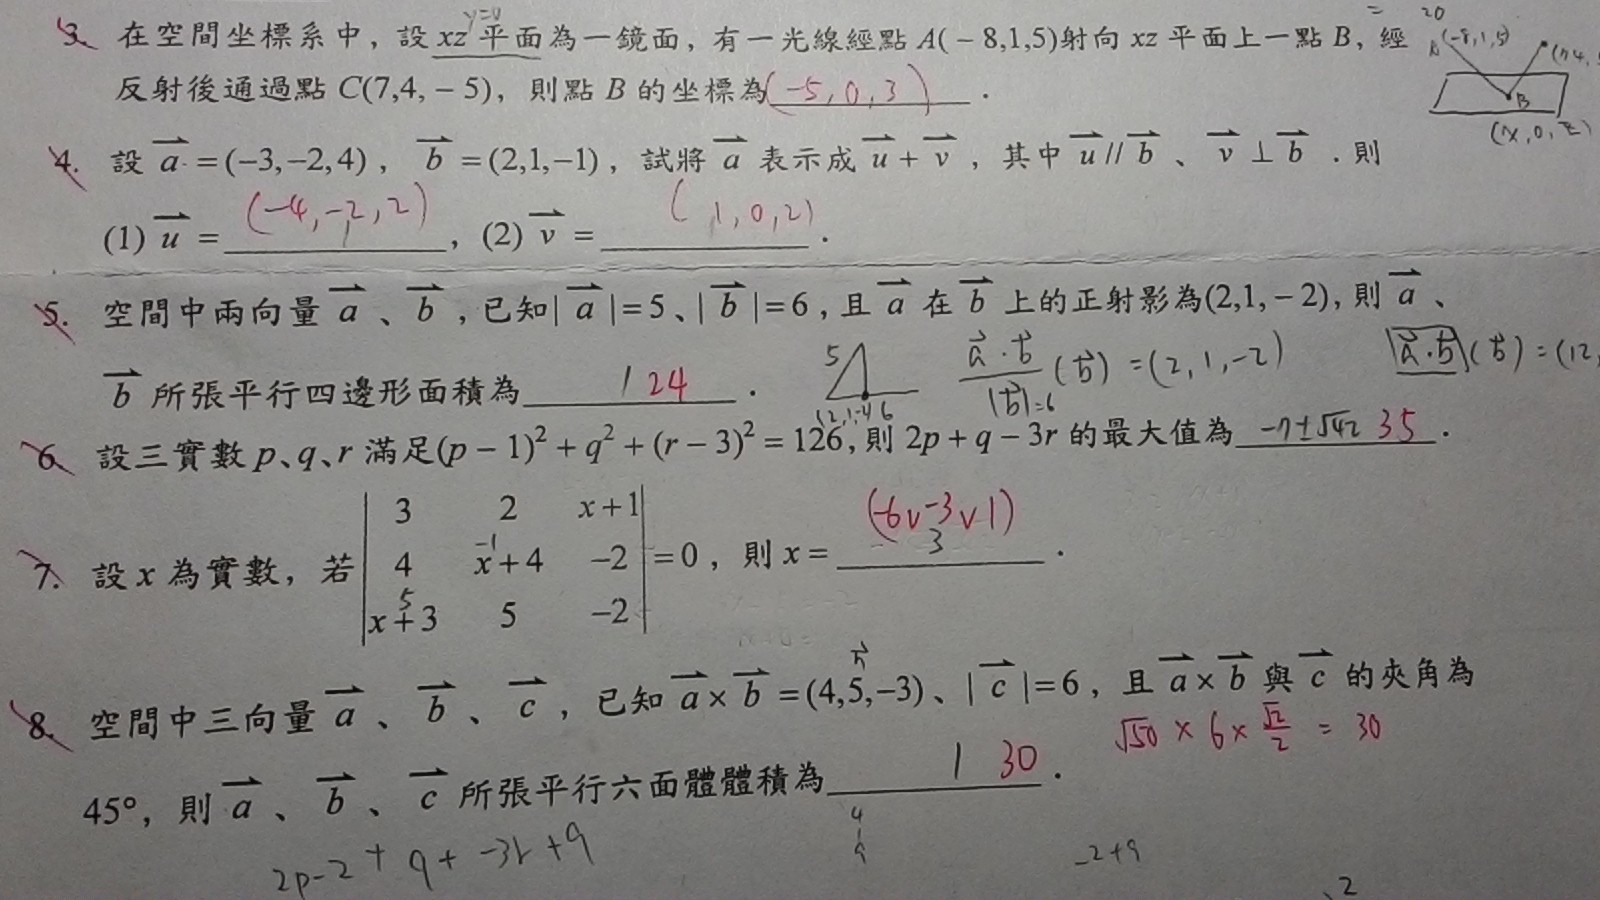 y=0
20
3. 在空間坐標系中，設 xz 平面為一鏡面，有一光線經點 A(−8,1,5)射向 xz 平面上一點 B，經
A(-8,1,5)
反射後通過點 C(7,4,−5)，則點 B 的坐標為(-5,0,3)．
B
(x,0,z)
4. 設 a = (−3,−2,4)，b = (2,1,−1)，試將 a 表示成 u + v，其中 u // b、v ⊥ b．則
(1) u = (-4,-2,2)，(2) v = (1,0,2)．
5. 空間中兩向量 a、b，已知| a |=5、| b |=6，且 a 在 b 上的正射影為(2,1,−2)，則 a、
b 所張平行四邊形面積為 1 24．
5
a·b/|b|=6 (b) = (2,1,-2)
|a·b|(b) = (12,
6. 設三實數 p、q、r 滿足(p−1)² + q² + (r−3)² = 126，則 2p + q − 3r 的最大值為 -7±√42 35．
(-6∨-3∨1)
7. 設 x 為實數，若 | 3 2 x+1 |
| 4 x+4 −2 | = 0，則 x = 3．
| x+3 5 −2 |
-1
5
n
8. 空間中三向量 a、b、c，已知 a × b = (4,5,−3)、| c |=6，且 a × b 與 c 的夾角為
√50 × 6 × √2/2 = 30
45°，則 a、b、c 所張平行六面體體積為 1 30．
2p-2 + q + -3r + 9
-2+9
2